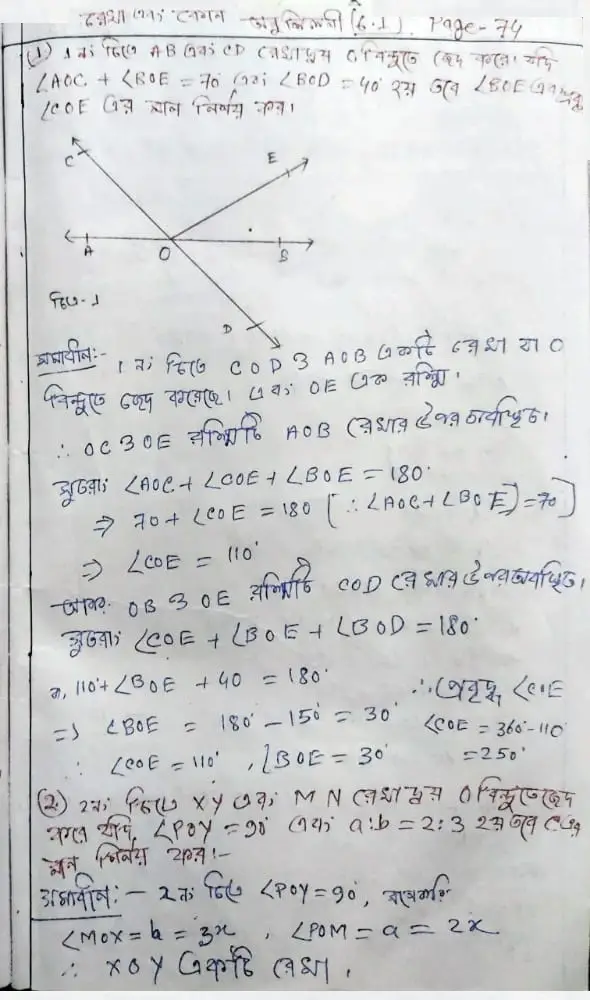 রেখা এবং কোণ অনুশীলনী (6.1) Page-74
(1) 1 নং চিত্রে AB এবং CD রেখাদ্বয় O বিন্দুতে ছেদ করে। যদি
∠AOC + ∠BOE = 70° এবং ∠BOD = 40° হয় তবে ∠BOE এবং
∠COE এর মান নির্ণয় কর।
C
E
A
O
B
চিত্র-1
D
সমাধান:- 1 নং চিত্রে COD ও AOB একটি রেখা যা O
বিন্দুতে ছেদ করেছে। এবং OE এক রশ্মি।
∴ OC ও OE রশ্মিটি AOB রেখার উপর অবস্থিত।
সুতরাং ∠AOC + ∠COE + ∠BOE = 180°
⇒ 70 + ∠COE = 180 [∴ ∠AOC + ∠BOE) = 70]
⇒ ∠COE = 110°
আবার OB ও OE রশ্মিটি COD রেখার উপর অবস্থিত।
সুতরাং ∠COE + ∠BOE + ∠BOD = 180°
বা, 110° + ∠BOE + 40 = 180°
⇒ ∠BOE = 180° - 150° = 30°
∴ ∠COE = 110°, ∠BOE = 30°
∴ প্রবৃদ্ধ ∠COE
∠COE = 360° - 110°
= 250°
(2) 2 নং চিত্রে XY এবং MN রেখাদ্বয় O বিন্দুতে ছেদ
করে যদি ∠POY = 90° এবং a:b = 2:3 হয় তবে c এর
মান নির্ণয় কর।-
সমাধান:- 2 নং চিত্রে ∠POY = 90°,
∠MOX = b = 3x, ∠POM = a = 2x
∴ XOY একটি রেখা।